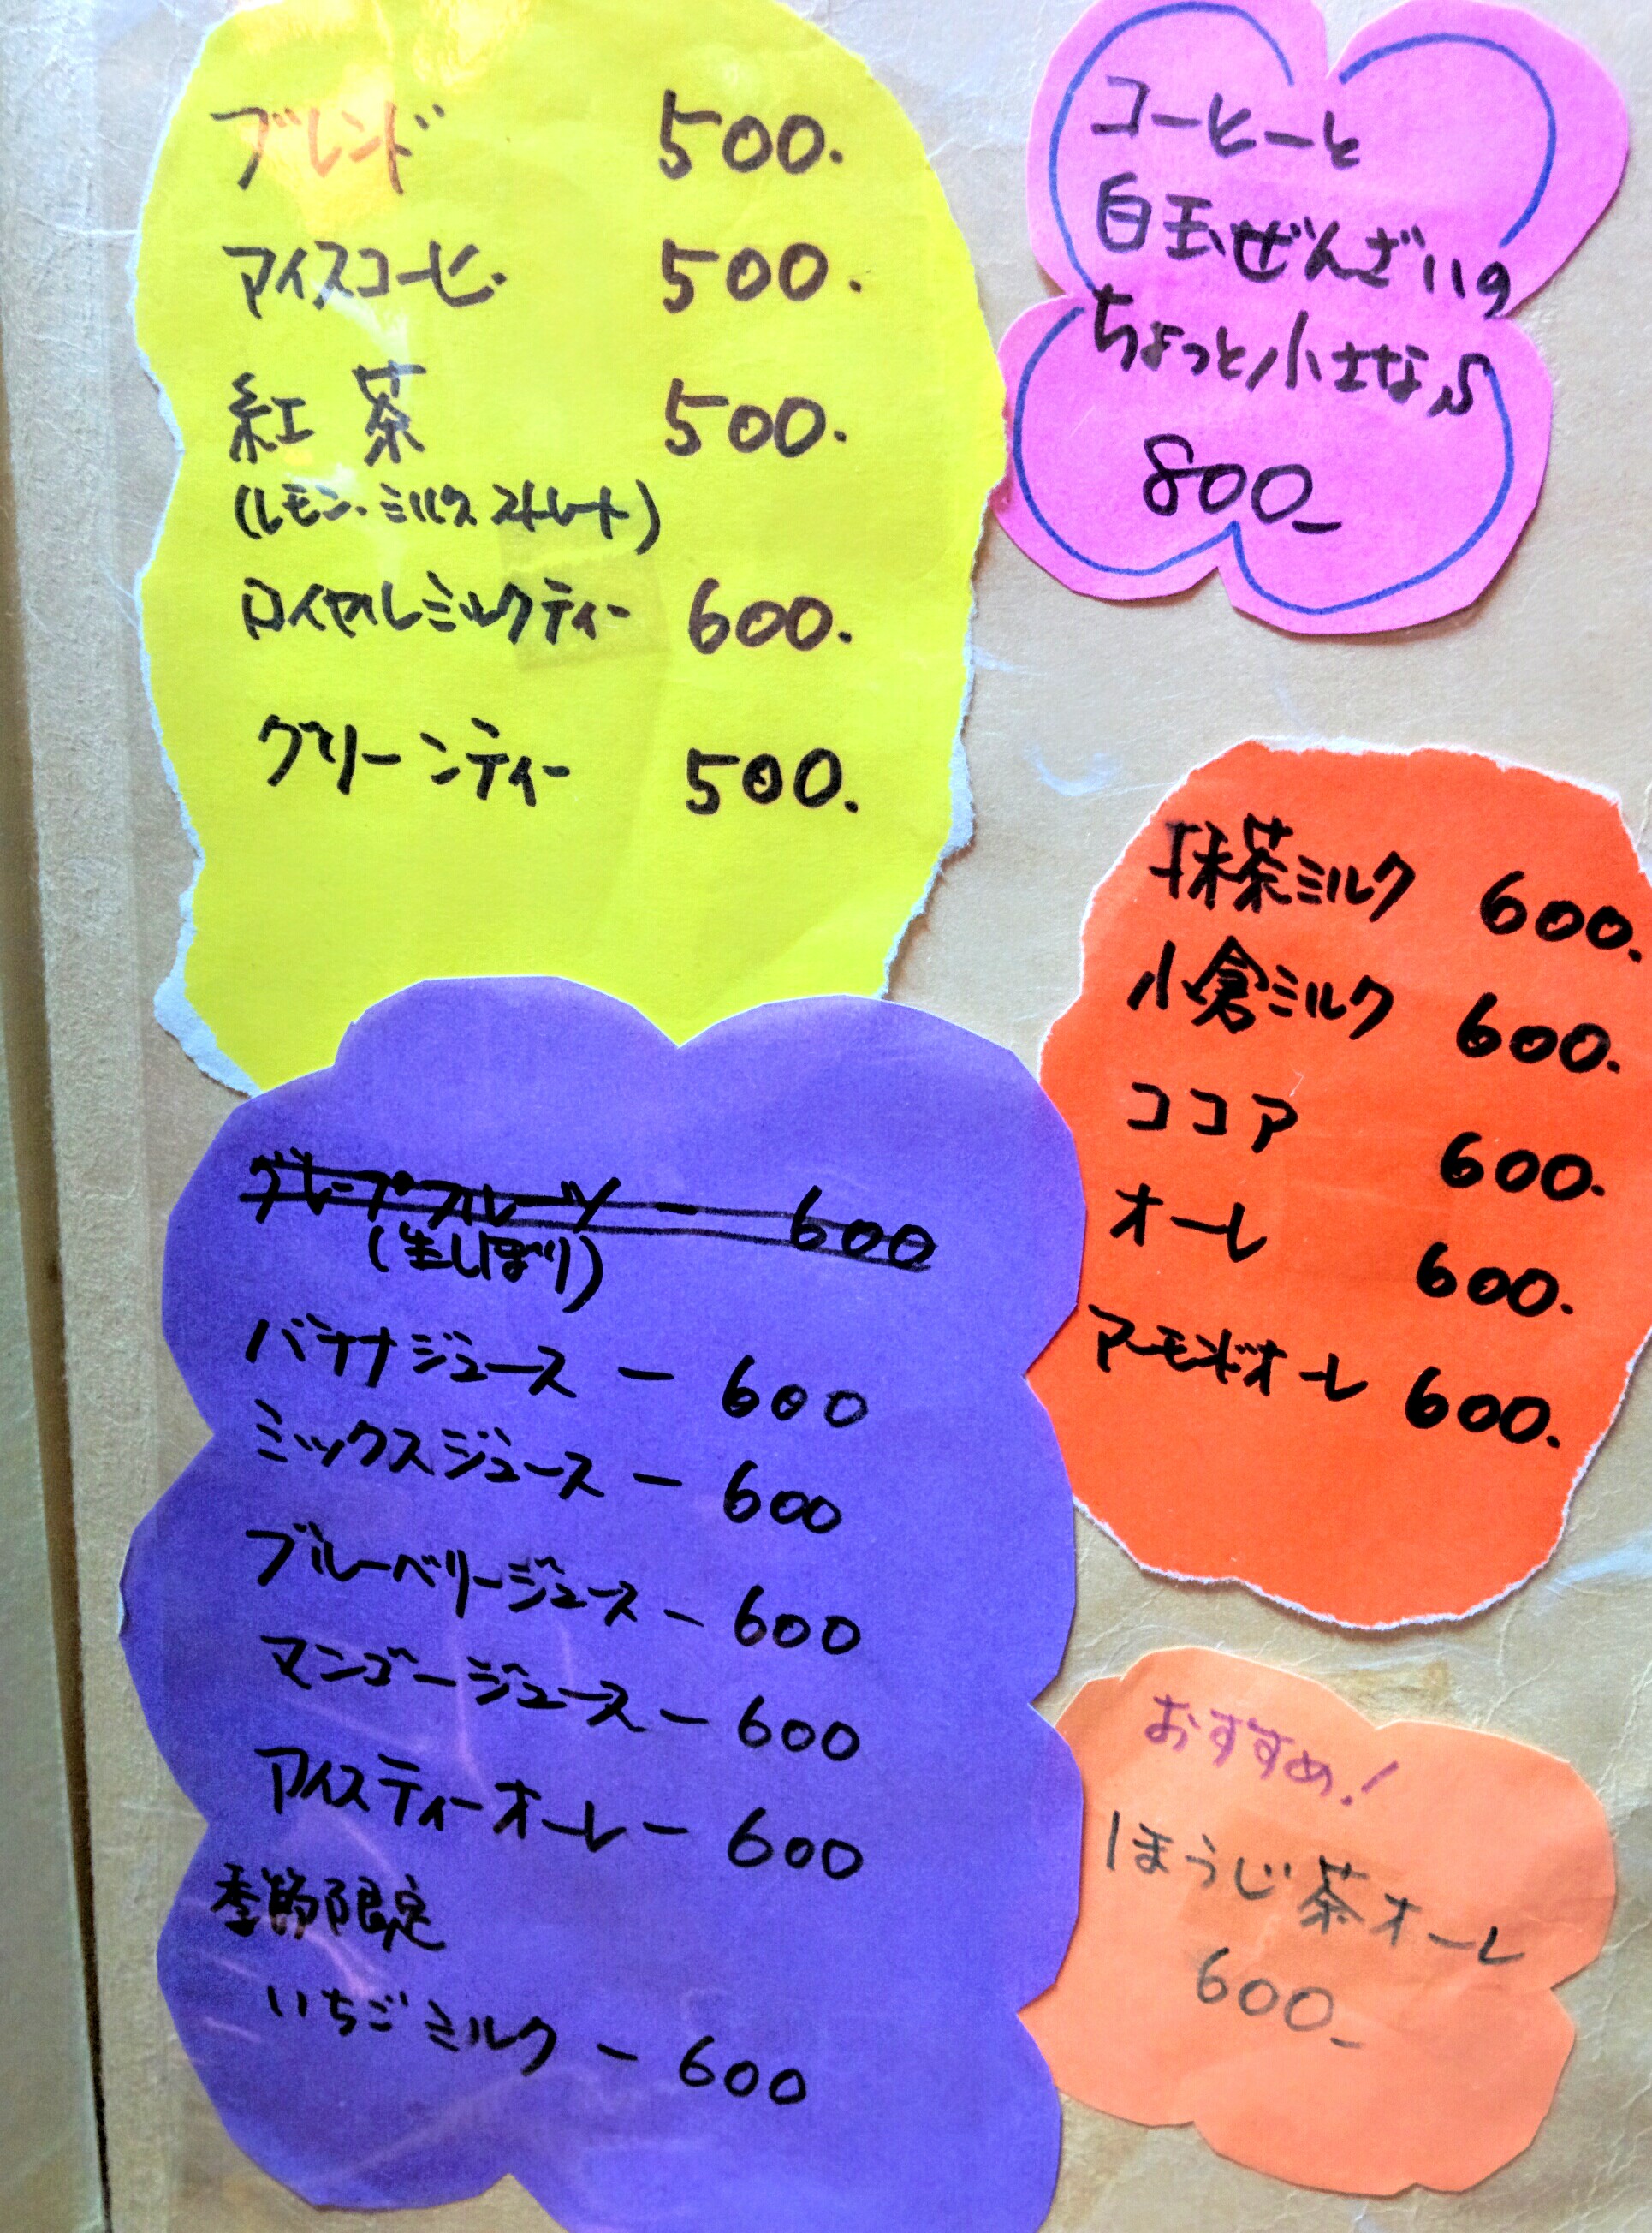 ブレンド 500.
アイスコーヒー 500.
紅茶 500.
(レモン・ミルク ストレート)
ロイヤルミルクティー 600.
グリーンティー 500.
コーヒーと
白玉ぜんざいの
ちょっと小さな♪
800-
抹茶ミルク 600.
小倉ミルク 600.
ココア 600.
オーレ 600.
アーモンドオーレ 600.
グレープフルーツ - 600
(生しぼり)
バナナジュース - 600
ミックスジュース - 600
ブルーベリージュース - 600
マンゴージュース - 600
アイスティーオーレ - 600
季節限定
いちごミルク - 600
おすすめ!
ほうじ茶オーレ
600-